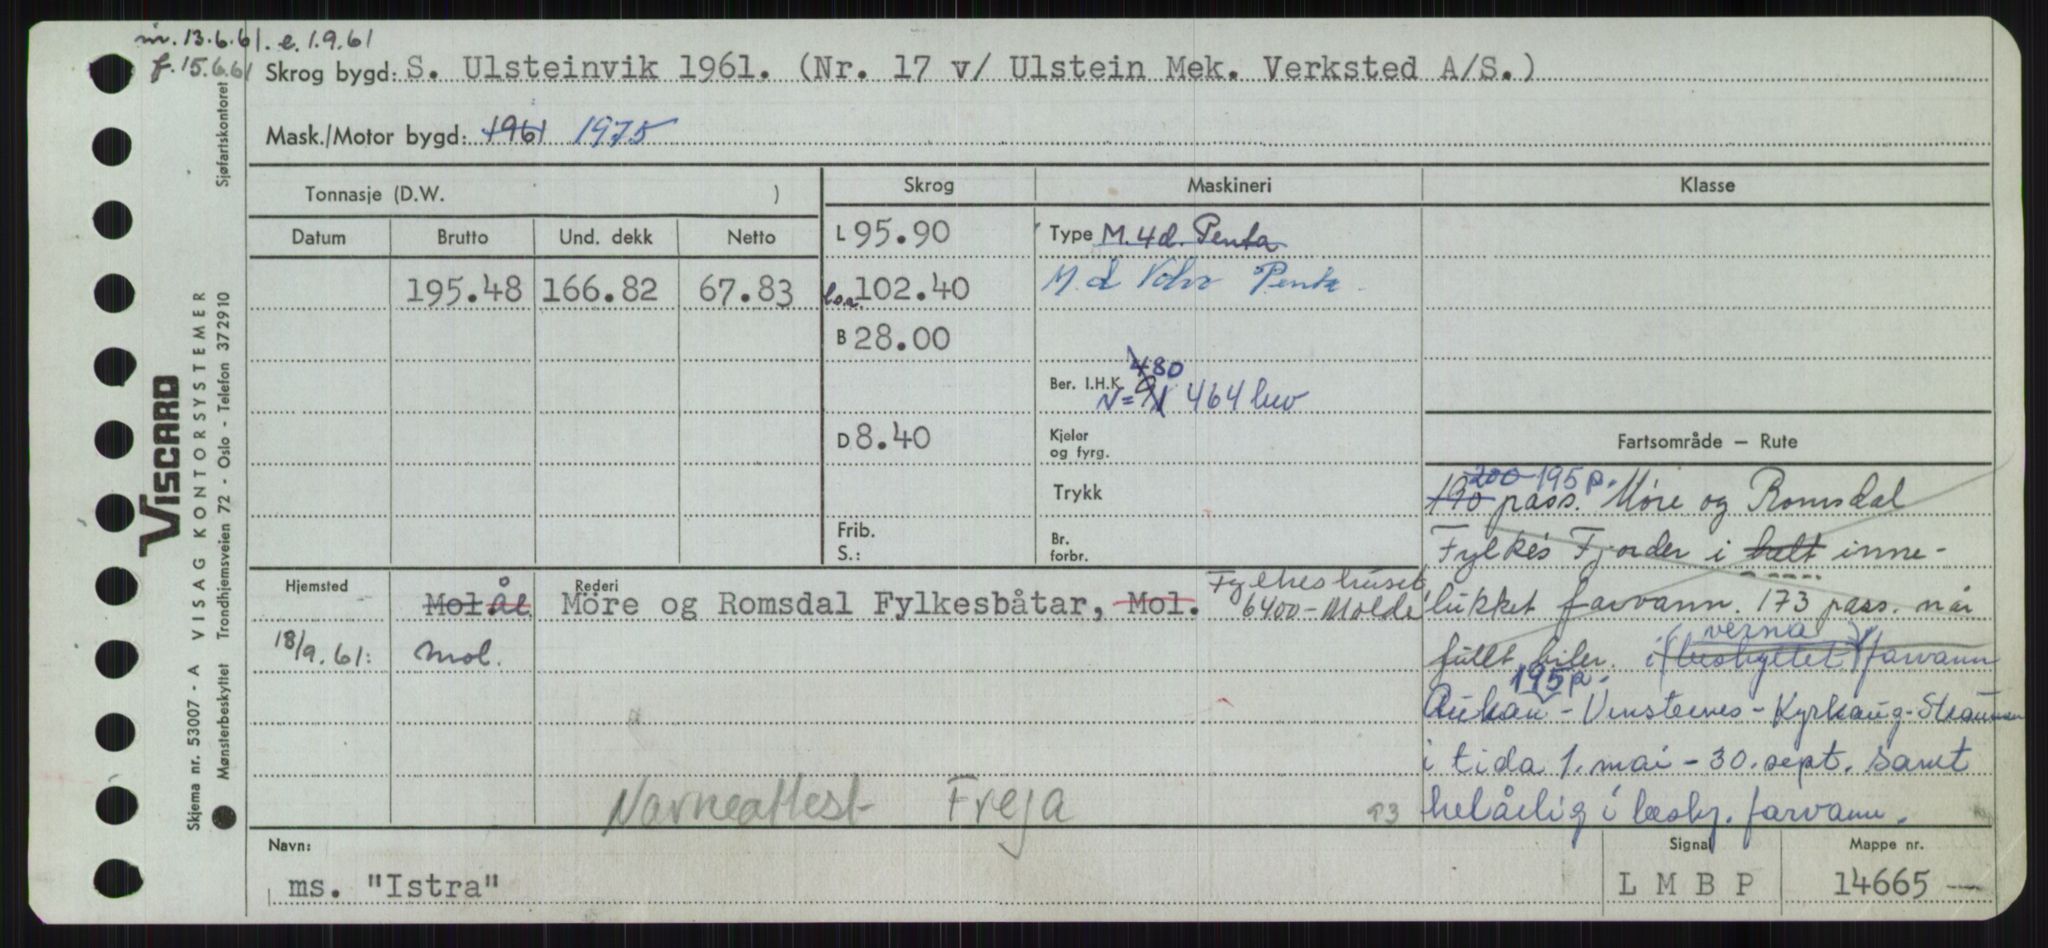 m. 13.6.61. e. 1.9.61
f. 15.6.61
Skrog bygd: S. Ulsteinvik 1961. (Nr. 17 v/ Ulstein Mek. Verksted A/S.)
Mask./Motor bygd: 1961 1975
Tonnasje (D.W. )
Skrog
Maskineri
Klasse
Datum
Brutto
Und. dekk
Netto
L 95.90
Type M. 4d. Penta
195.48
166.82
67.83
l.o.a. 102.40
M d Volvo Penta
B 28.00
480
Ber. I.H.K.
N= 91 464 hw
D 8.40
Kjeler
og fyrg.
Fartsområde — Rute
Trykk
Frib.
S.:
Br.
forbr.
200 195 p.
190 pass. Møre og Romsdal
Fylkes Fjorder i helt inne-
lukket farvann. 173 pass. når
fullt biler. i (beskyttet) farvann
verna
195 p.
Aukan - Vinsternes - Kyrhaug - Straumen
i tida 1. mai - 30. sept. samt
helårlig i besk. farvann.
Hjemsted
Mol. Ål
Rederi
Möre og Romsdal Fylkesbåtar, Mol.
Fylkeshuset,
6400 - Molde
18/9.61: Mol.
Navneattest Freja
93
Navn:
ms. "Istra"
Signal
L M B P
Mappe nr.
14665 —
VISCARD
VISAG KONTORSYSTEMER
Skjema nr. 53007 - A
Mønsterbeskyttet Trondhjemsveien 72 - Oslo - Telefon 372910
Sjøfartskontoret